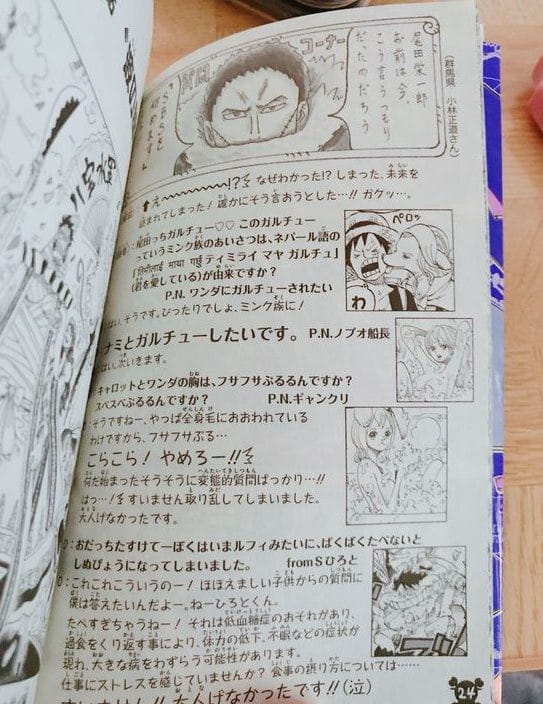 コーナー
質問
尾田栄一郎
お前は今
こう言うつもり
だったのだろう
(群馬県 小林正道さん)
え〜〜〜〜!? なぜわかった!? しまった、未来を
まれてしまった! 確かにそう言おうとした…!! ガクッ…。
尾田っちガルチュー♡♡ このガルチュー
っていうミンク族のあいさつは、ネパール語の
「तिमीलाई माया गर्छु ティミライ マヤ ガルチュ」
(君を愛している)が由来ですか?
P.N. ワンダにガルチューされたい
はい、そうです。ぴったりでしょ、ミンク族に!
ペロッ
わ
ナミとガルチューしたいです。 P.N.ノブオ船長
はい。次いきます。
キャロットとワンダの胸は、フサフサぶるるんですか?
スベスベぶるるんですか? P.N.ギャンクリ
そうですねー、やっぱ全身毛におおわれている
わけですから、フサフサぶる…
こらこら! やめろー!!
何だ始まったそうそうに変態的質問ばっかり…!!
はっ…! すいません取り乱してしまいました。
大人げなかったです。
D:おだっちたすけてーぼくはいまルフィみたいに、ばくばくたべないと
しぬびょうになってしまいました。 fromSひろと
O:これこれこういうのー! ほほえましい子供からの質問に
僕は答えたいんだよー。ねーひろとくん。
たべすぎちゃうねー! それは低血糖症のおそれがあり、
過食をくり返す事により、体力の低下、不眠などの症状が
現れ、大きな病をわずらう可能性があります。
仕事にストレスを感じていませんか? 食事の摂り方については……
すいません!! 大人げなかったです!!(泣)
24